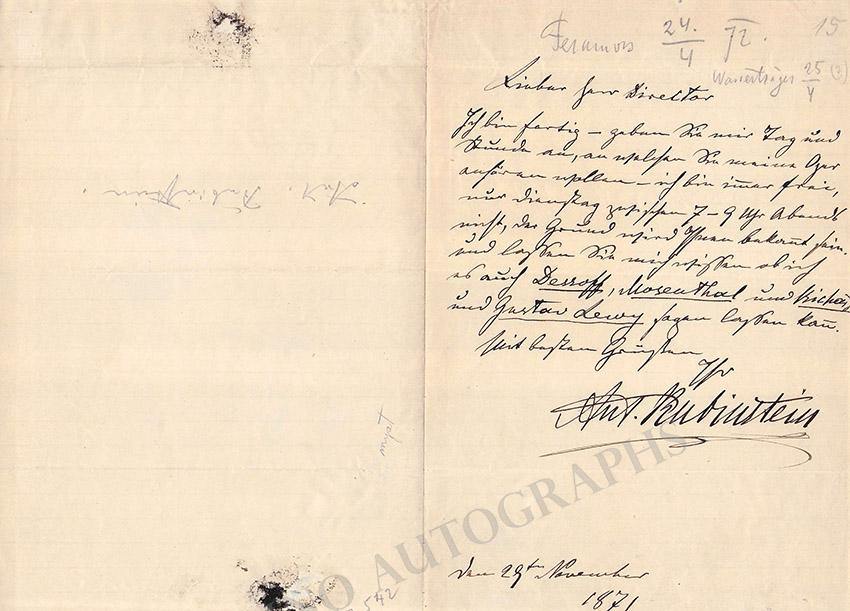 Feramors 24./4 72. 15
Wasserträger 25/4 (?)
Lieber Herr Director
Ich bin fertig – geben Sie mir Tag und
Stunde an, an welchen Sie meine Oper
anhören wollen – ich bin immer frei,
nur Dienstag zwischen 7–9 Uhr Abends
nicht, der Grund wird Ihnen bekannt sein.
und lassen Sie mich wissen ob ich
es auch Dessoff, Mosenthal und Richard
und Gustav Lewy sagen lassen kann.
Mit besten Grüssen
Ihr
Ant. Rubinstein
den 29ten November
1871
Ant. Rubinstein.
542
AUTOGRAPHS